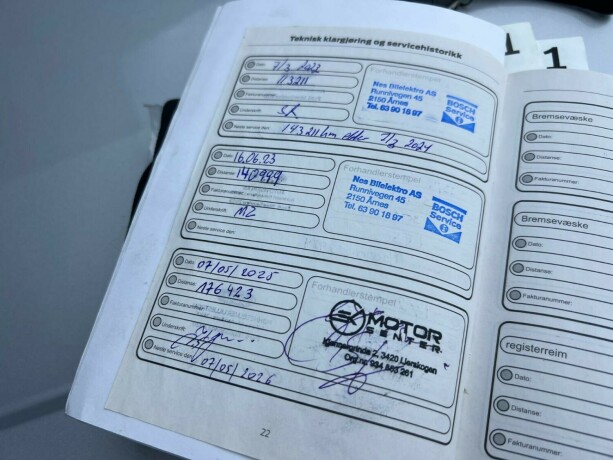 Teknisk klargjøring og servicehistorikk
1
1
Dato: 7/3 2022
Distanse: 113211
Fakturanummer:
Underskrift: SK
Neste service den: 143211 km eller 7/3 2024
Nes Bilelektro AS
Runnivegen 45
2150 Årnes
Tel. 63 90 18 97
BOSCH
Service
Dato: 16.06.23
Distanse: 140999
Fakturanummer:
Underskrift: MZ
Neste service den:
Forhandlerstempel
Nes Bilelektro AS
Runnivegen 45
2150 Årnes
Tel. 63 90 18 97
BOSCH
Service
Dato: 07/05/2025
Distanse: 176423
Fakturanummer:
Underskrift:
Neste service den: 07/05/2026
Forhandlerstempel
MOTOR
SENTER
2, 3420 Lierskogen
Org.nr. 934 863 261
22
Bremsevæske
Dato:
Distanse:
Fakturanummer:
Bremsevæske
Dato:
Distanse:
Fakturanummer:
registerreim
Dato:
Distanse:
Fakturanummer: